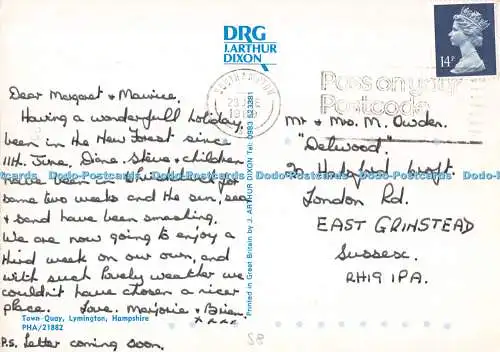 DRG
J. ARTHUR
DIXON
14P
SOUTHAMPTON
Pass on your
Postcode
Dear Margaret & Maurice.
Having a wonderfull holiday,
been in the New Forest since
11th. June. Diana. Steve & children
have been in for
some two weeks and the sun, sea
& sand have been smashing.
We are now going to enjoy a
third week on our own, and
with such lovely weather we
couldn't have chosen a nicer
place. Love. Marjorie & Brian.
xxxx
Town Quay, Lymington, Hampshire
PHA/21882
P.S. Letter coming soon.
Printed in Great Britain by J. ARTHUR DIXON Tel: 0983 523381
Mr & Mrs. M. Owden.
"Delwood"
Croft.
London Rd.
EAST GRINSTEAD
Sussex.
RH19 1PA.
58
D-Postcards D-Postcards D-Postcards D-Postcards D-Postcards